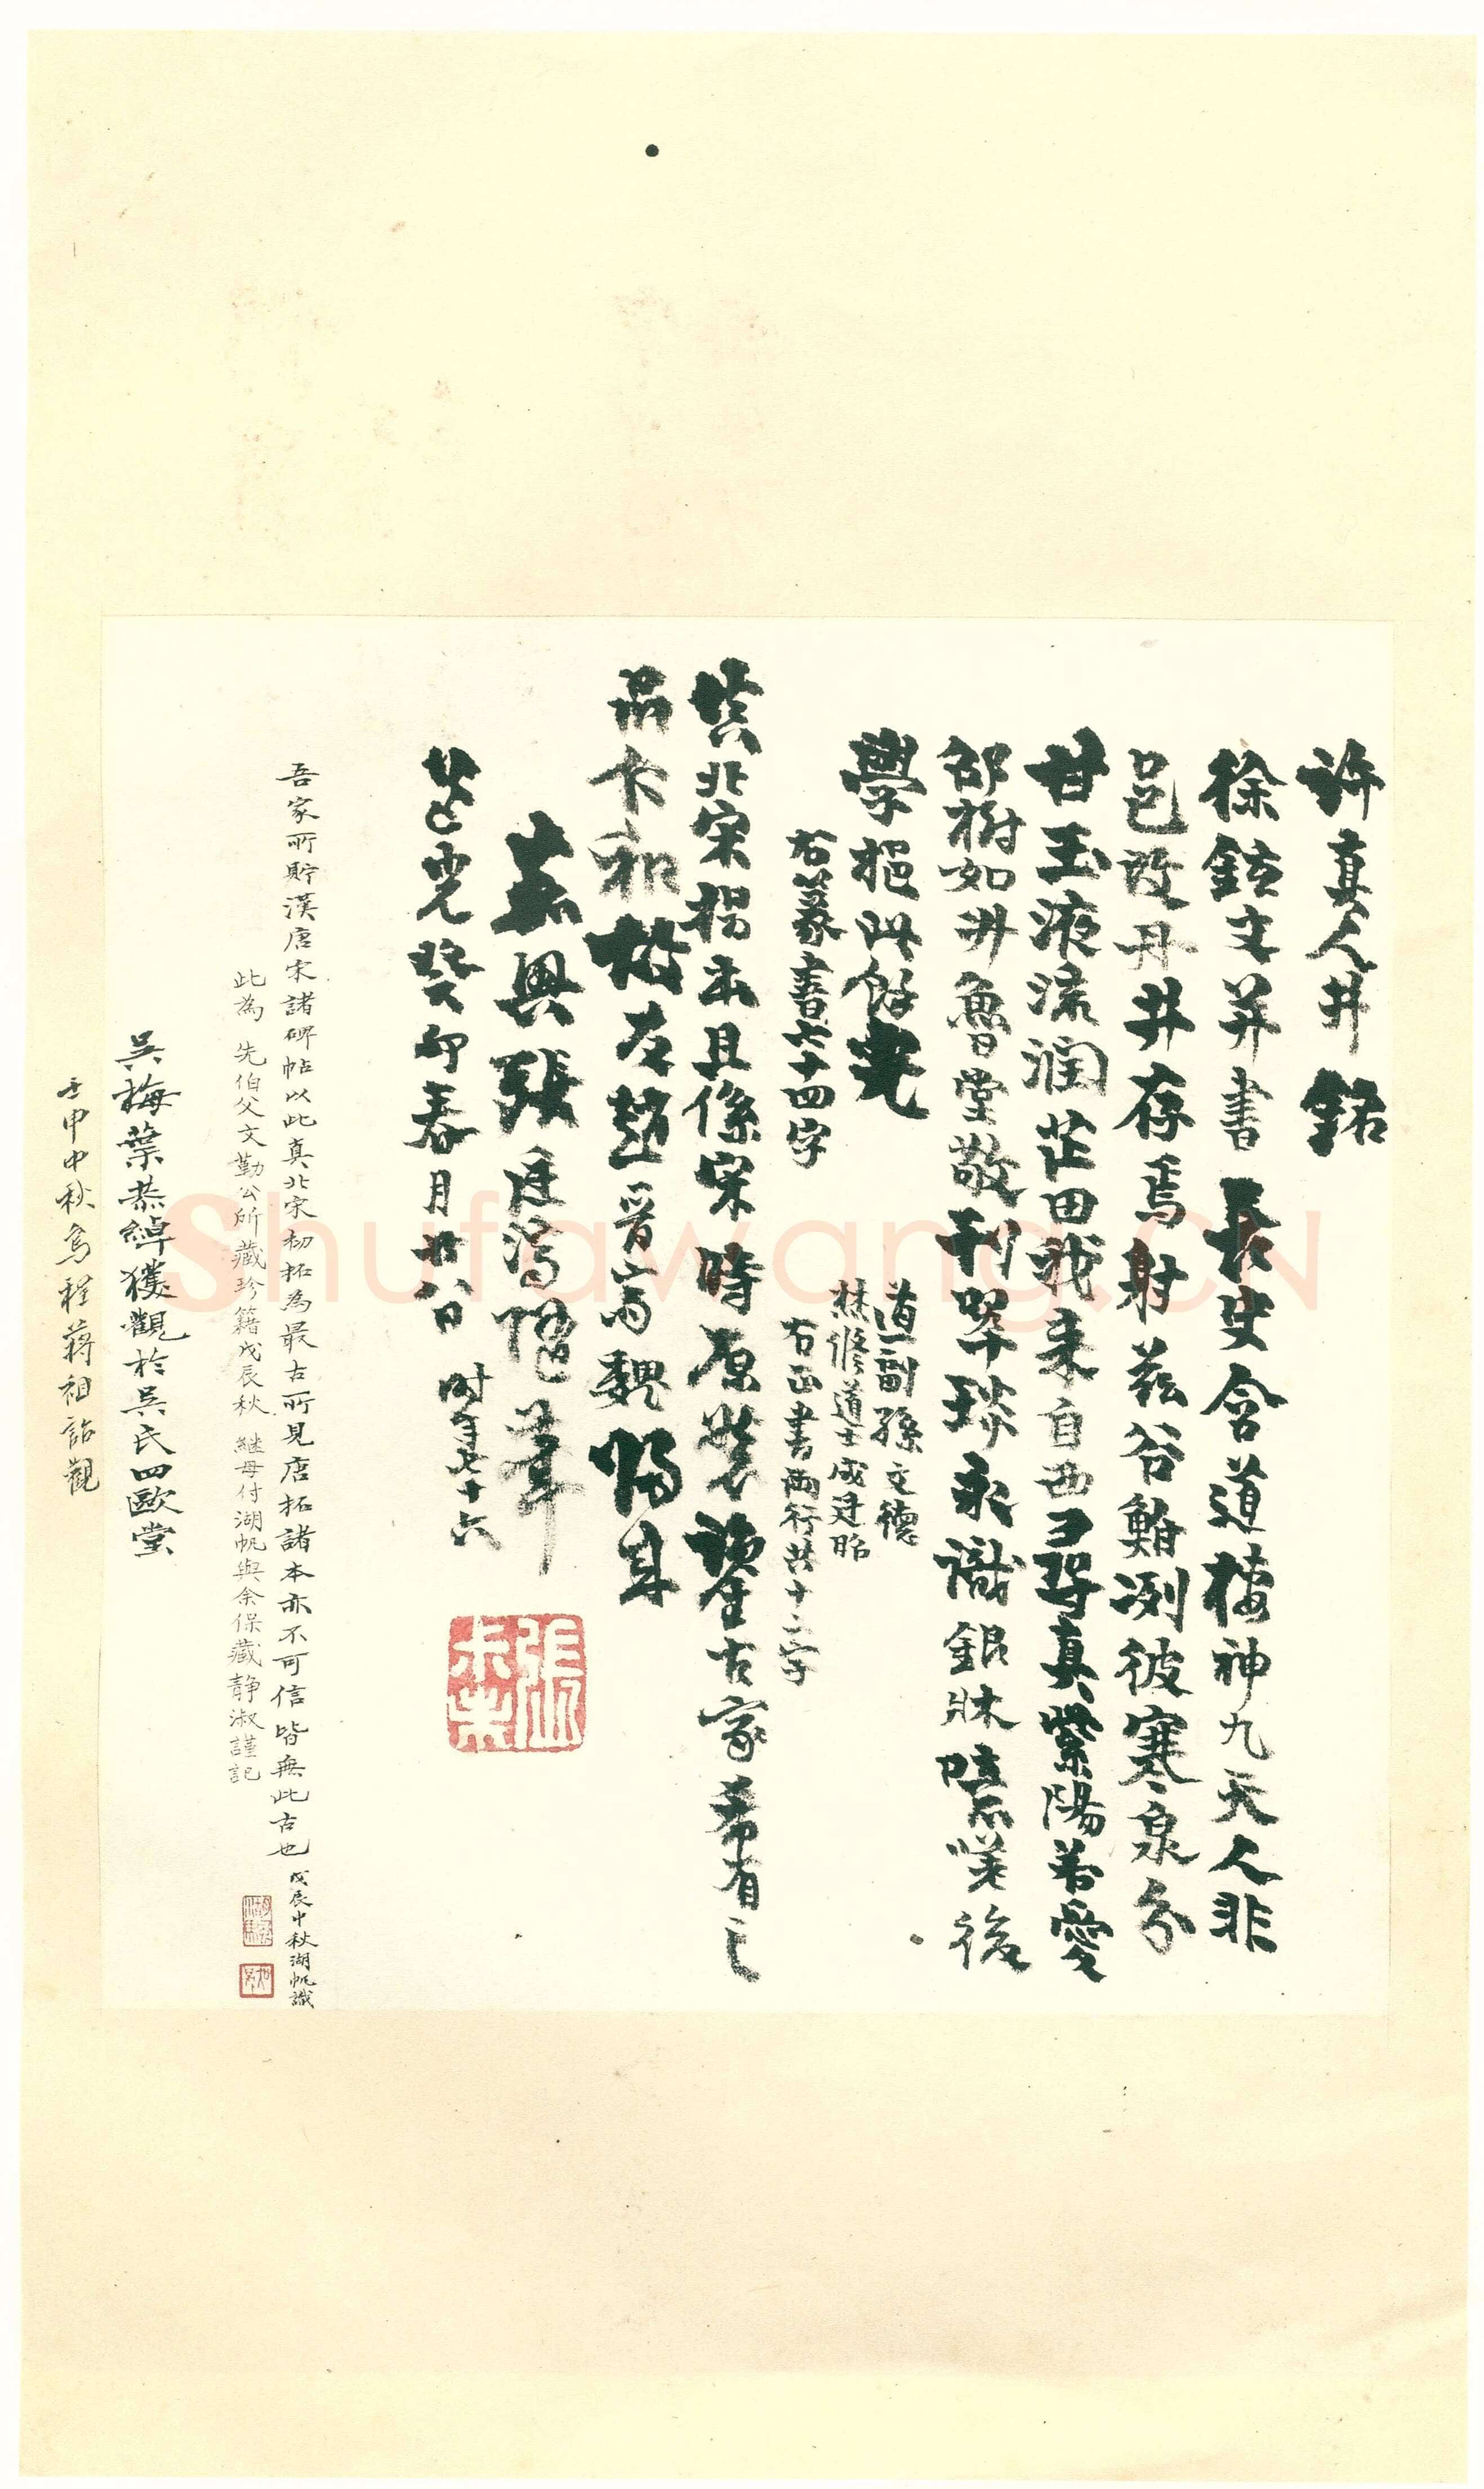 許真人井銘
徐鉉文并書 長史含道棲神九天人非
邑改丹井存焉射茲谷鮒洌彼寒泉分
甘玉液流潤芷田我來自西尋真紫陽若愛
召樹如升魯堂敬刊翠琰永識銀牀噫嗟後
學挹此餘光
道副孫文德
林修道士成廷昭
右篆書六十四字
右正書兩行共十二字
真北宋揚本且係宋時原裝鑒古家希有之
品卞和 在趙晉富魏 耳
嘉興張廷濟 筆
道光癸卯春月廿八日 時年七十六
張
未
吾家所貯漢唐宋諸碑帖以此真北宋初拓為最古所見唐拓諸本亦不可信皆無此古也 戊辰中秋湖帆識
此為 先伯父文勤公所藏珍籍戊辰秋 繼母付湖帆與余保藏靜淑謹記
吳梅葉恭綽獲觀於吳氏四歐堂
壬申中秋烏程蔣祖詒觀
Shufawang.CN